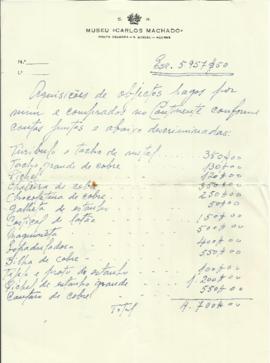 C. M.
MUSEU «CARLOS MACHADO»
PONTA DELGADA — S. MIGUEL — AÇORES
N.º
Esc. 5957$50
Aquisições de objectos pagos por
mim e comprados no Continente conforme
contas juntas e abaixo descriminadas:
Turibulo e tacho de metal 350$00
Tacho grande de cobre 130$00
Pichel 120$00
Chaleira de cobre 350$00
Chocolateira de cobre 250$00
Galheta de estanho 50$00
Castiçal de latão 150$00
Maquineta 500$00
400$00
Bilha de cobre 550$00
e prato de estanho 100$00
Pichel de estanho grande 1.200$00
Cantaro de cobre 550$00
Total 4.700$00